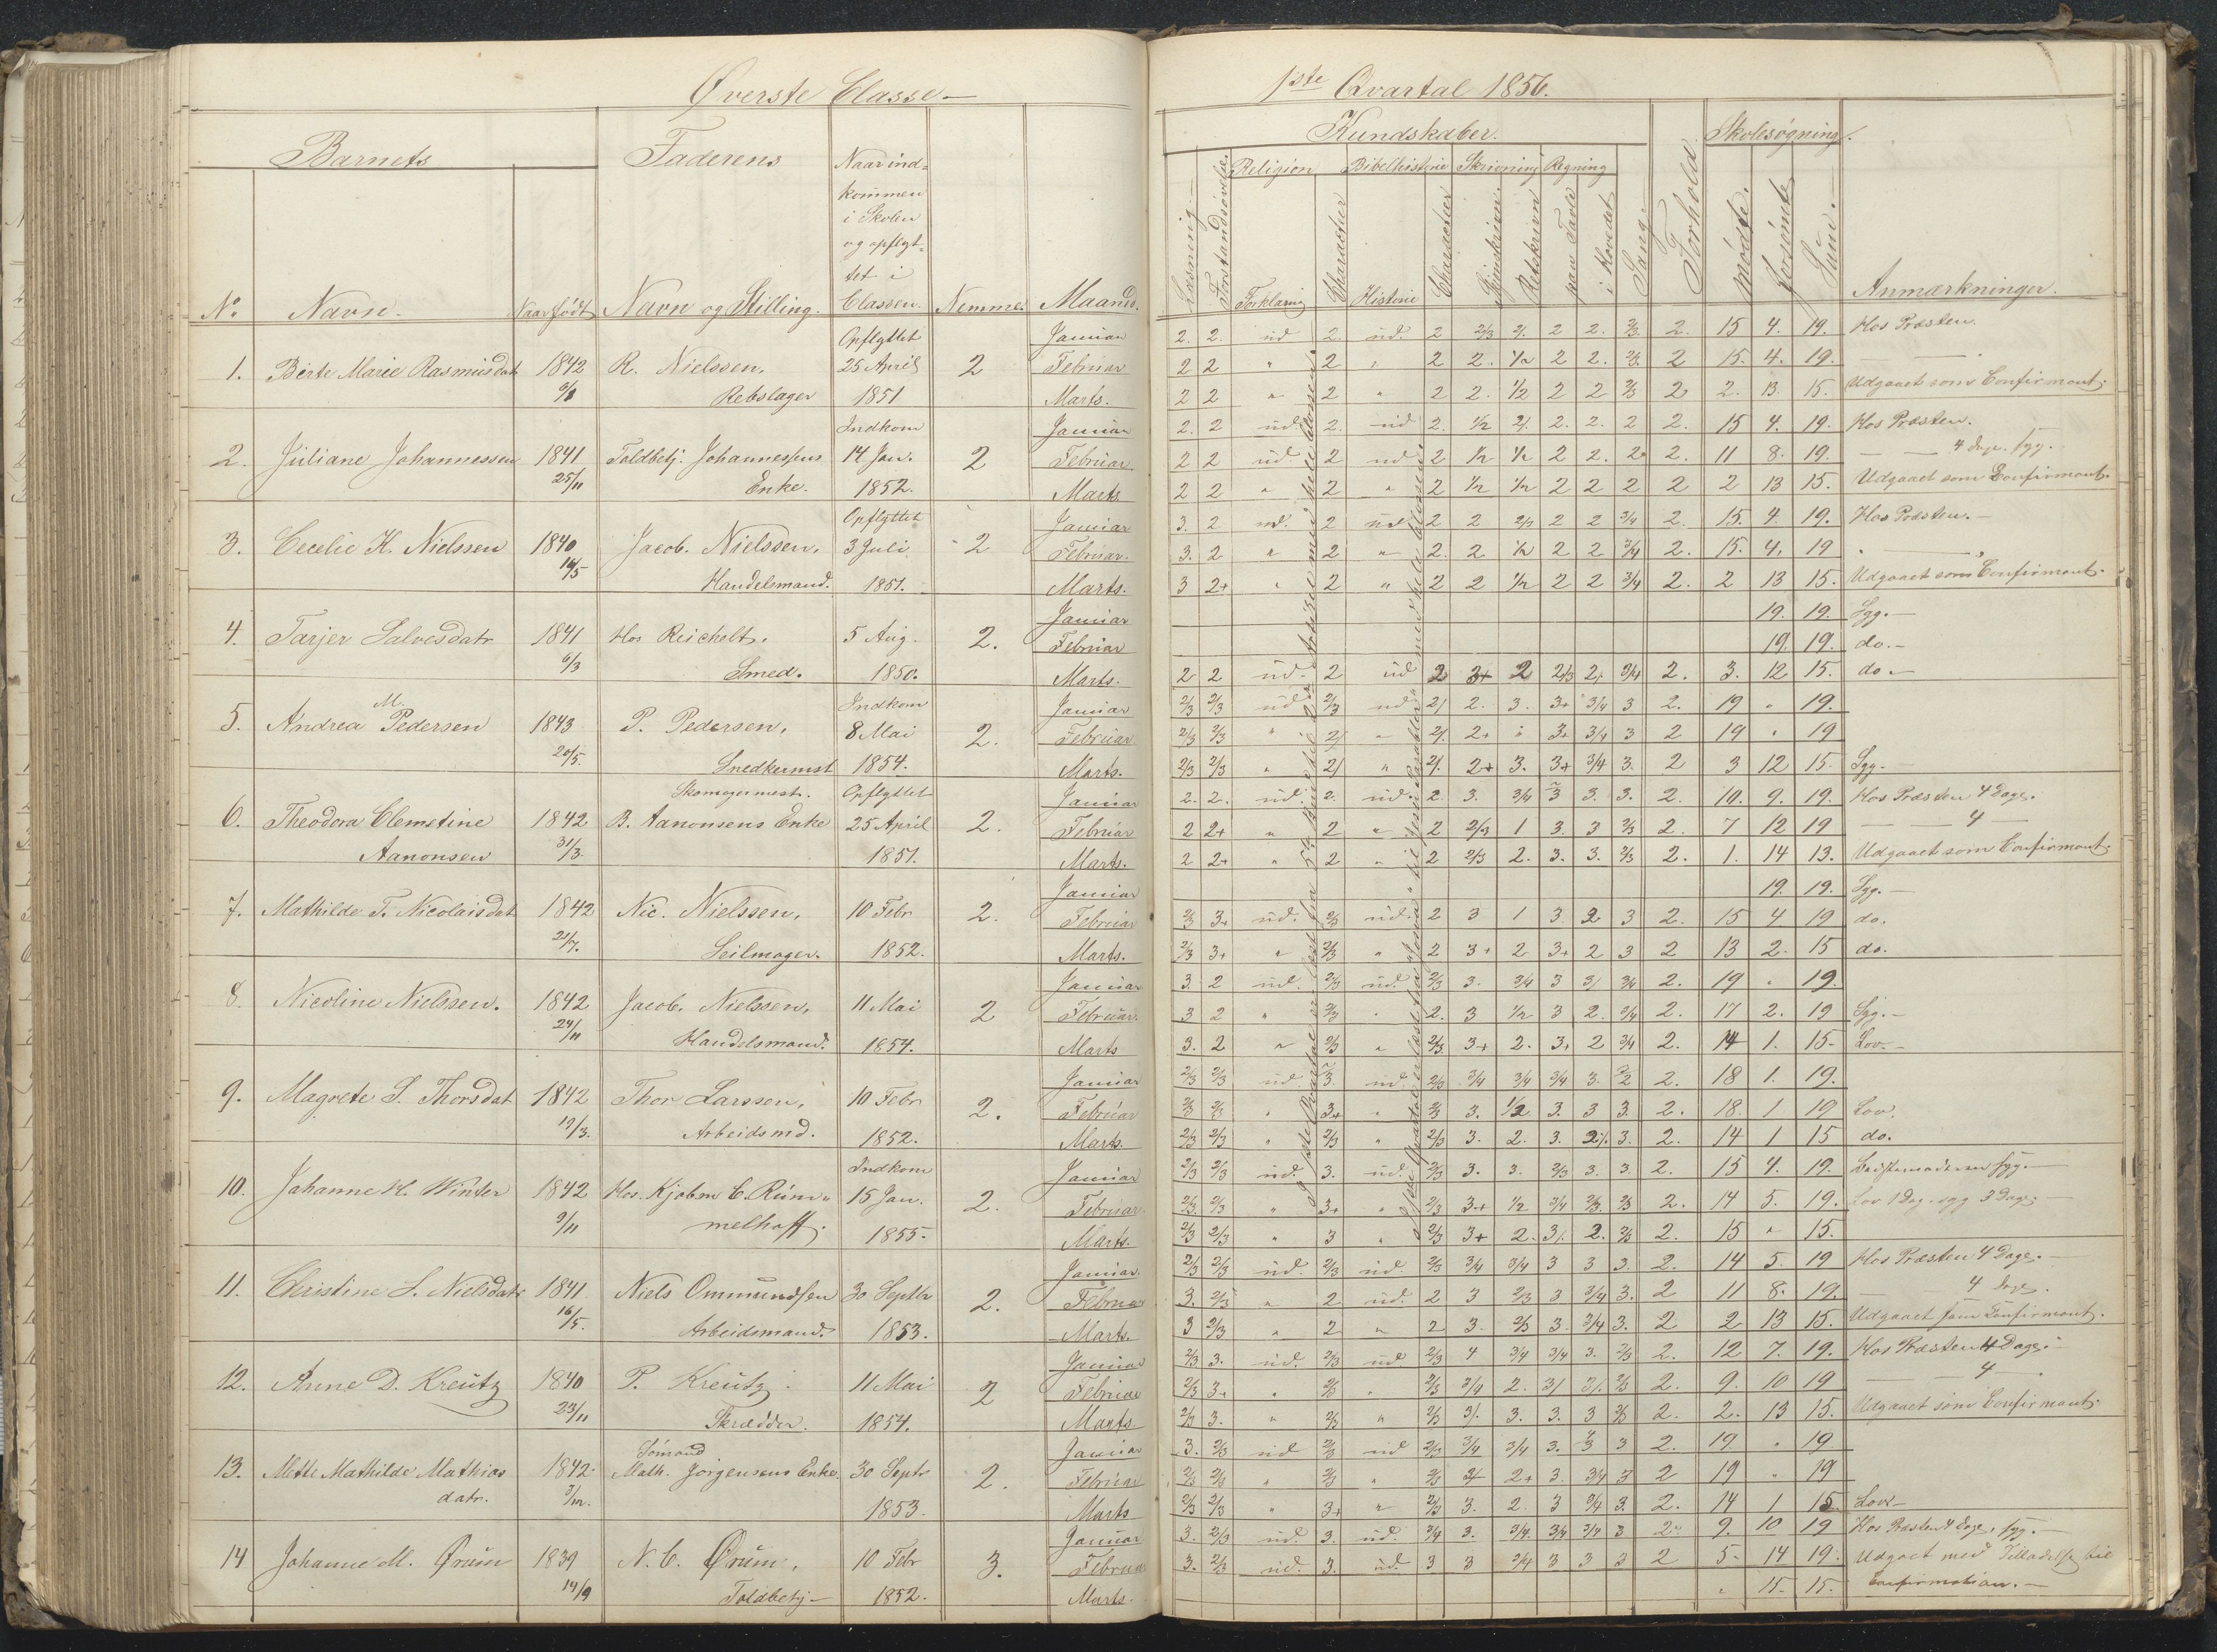 Øverste Classe
Barnets
Faderens
Naar ind-
kommen
i Skolen
og opflyt-
tet i
Classen.
No Navn. Naar født Navn og Stilling. Nemme Maaned.
1. Birte Marie Rasmusdat 1842 6/8 R. Nielssen, Rebslager Opflyttet 25 April 1851 2 Januar Februar Marts.
2. Juliane Johannessen 1841 25/11 Toldbetj. Johannessens Enke. Indkom 14 Jan. 1852. 2 Januar Februar. Marts
3. Cecelie K. Nielssen 1840 Jacob. Nielssen, Handelsmand. Opflyttet 3 Juli. 1851. 2 Januar Februar. Marts.
4. Tarjer Salvesdatr 1841 6/3 Hos Reichelt. Smed. 5 Aug. 1850. 2. Januar Februar Marts.
5. Andrea M. Pedersen 1843 20/5. P. Pedersen, Snedkermst Indkom 8 Mai 1854. 2. Januar Februar Marts.
6. Theodora Clemetine Aanonsen 1842 31/3. Skomagermest. B. Aanonsens Enke Opflyttet 25 April 1851. 2. Januar Februar Marts.
7. Mathilde T. Nicolaisdat 1842 21/7. Nic. Nielssen, Seilmager. 10 Febr 1852. 2. Januar Februar Marts.
8. Nicoline Nielssen. 1842 24/11 Jacob. Nielssen, Handelsmand. 11 Mai 1854. 2 Januar Februar. Marts
9. Magrete S. Thorsdat 1842 Thor Larssen, Arbeidsmd. 10 Febr 1852. 2. Januar Februar Marts.
10. Johanne H. Winter 1842 9/11 Hos. Kjøbm C. Rummelhoff. Indkom 15 Jan. 1855. 2. Januar Februar Marts.
11. Christine S. Nielsdatr 1841 16/5. Niels Ommundsen Arbeidsmand. 30 Septbr 1853. 2. Januar. Februar Marts.
12. Anne D. Kreutz 1840 23/11 P. Kreutz. Skrædder. 11 Mai 1854. 2 Januar Februar Marts.
13. Mette Mathilde Mathias datr. 1842 Sømand Math. Jørgensens Enke. 30 Septr 1853. 2. Januar Februar Marts
14 Johanne M. Ørum 1839 14/9 N. C. Ørum, Toldbetj 10 Febr 1852. 3. Januar Februar Marts.
1ste Qvartal 1856.
Kundskaber.
Skolesøgning.
Religion Bibelhistorie Skrivning Regning
Læsning Forstandsøvelse Forklaring Charactter Historie Character Skjønskrivn. Retskrivn paa Tavle i Hovedet Sang. Forhold Mødte. Forsømte Sum. Anmærkninger.
2. 2. ud 2. ud. 2 2/3 2/. 2 2. 2/3. 2. 15 4. 19. Hos Præsten.
2 2 " 2 " 2 2. 1/2 2 2. 2/3. 2 15. 4. 19.
2 2 " 2 " 2 2. 1/2 2 2 2/3 2 2. 13. 15. Udgaaet som Confirmant.
2. 2 ud 2. ud 2. 1/2 2/. 2. 2. 2 2. 15 4. 19. Hos Præsten.
2 2 ud. 2 ud 2 1/2 1/2 2 2. 2 2. 11 8. 19. 4 Dage, syg.
2 2 " 2 " 2 1/2 1/2 2 2 2 2 2 13 15. Udgaaet som Confirmant.
3. 2 ud. 2 ud 2 2 2/3 2 2 3/4 2. 15. 4. 19. Hos Præsten.
3. 2 " 2 " 2. 2. 1/2 2 2 3/4 2. 15. 4. 19
3 2+ " 2 " 2 2 1/2 2 2 3/4 2. 2 13 15. Udgaaet som Confirmant.
19. 19. Syg.
19. 19. do.
2 2 ud. 2 ud 2 3+ 2 2/3 2. 3/4 2. 3. 12 15. do.
2/3 2/3 ud 2/3 ud 2/ 2. 3. 3+ 3/4 3 2. 19 " 19.
2/3 2/3 " 2/ " 2/. 2+ " 3+ 3/4 3 2 19 " 19
2/3 2/3 " 2/ " 2/. 2+ 3. 3+ 3/4 3. 2 3 12 15. Syg.
2. 2. ud. 2. ud. 2. 3. 3/4 3 3. 3. 2. 10. 9. 19. Hos Præsten 4 Dage.
2 2+ " 2 " 2 2/3 1 3. 3 2/3 2. 7 12 19 4
2 2+ " 2 " 2 2/3 2. 3. 3. 2/3 2. 1. 14 13. Udgaaet som Confirmant.
19. 19. Syg.
2/3 3+ ud. 2/3 ud. 2 3 1 3. 2 3 2. 15 4 19 do.
2/3 3+ " 2/3 " 2 3+ 2 3+ 2 3 2 13 2. 15 do.
3. 2 ud. 2/3 ud. 2/3 3. 3/4 3 3/ 3/4 2. 19 " 19.
3 2 " 2/3 " 2. 3 1/2 3 2. 3/4 2. 17 2. 19 Syg.
3. 2 " 2/3 " 2/3 3+ 2. 3+ 2 3/4 2. 14 1. 15. Lov.
2/3 2/3 ud. 3. ud. 2/3 3/4 3/4 3/4 3. 2 2. 18 1. 19.
2/3 2/3 " 3+ " 2/3 3. 1/2 3. 3 3. 2. 18. 1 19 Lov.
2/3 2/3 " 2/3 " 2/3 3. 2. 3. 2/. 3. 2. 14 1 15 do.
2/3 2/3 ud. 3. ud. 2/3 3. 3. 2/3 3. 3. 2. 15 4. 19. syg.
2/3. 2/3 " 3+ " 2/3 3+ 1/2 3/4 2/3. 2/3 2. 14 5. 19. Lov 1 Dag. syg 3 Dage.
2/3 2/3 " 3 " 2/3 3+ 2. 3/. 2. 2/3 2. 15 " 15.
2/3 2/3 ud. 2/3 ud. 2/3 3/4 3/4 3 3 3. 2. 14 5. 19 Hos Præsten 4 Dage.
3. 2/3 " 2 ud. 2 3 2/3 3 3/4 3. 2 11 8. 19. 4 Dage.
3 2/3 " 2 " 2 3. 2/3 3. 3/4 3. 2 2 13 15. Udgaaet som Confirmant.
2/3 3. ud. 2/3 ud 2/3 4 3/4 3/4 3. 2/3 2. 12 7. 19. Hos Præsten 4 Dage.
2/3 3+ " 2/3 " 2/3 3/4 2. 3/ 3/. 2/3 2. 9. 10 19 4
2/3 3. " 2/3 " 2/3 3/. 3. 3. 3 2/3 2. 2. 13 15. Udgaaet som Confirmant.
3. 2/3 ud 2/3 ud 2/3 3/4 3/4 3. 3 3 2. 19 " 19.
2/3 2/3 " 2/3 " 2/3 2+ 3. 3/4 3 2 19 " 19
2/3 2/3 " 3+ " 2/3 3. 2. 3 3/4 3. 2. 14 1 15. Lov
3. 2/3 ud. 3. ud. 3/4 3. 3/4. 3/4 3/4 3 2. 9. 10 19 Hos Præsten 4 Dage, syg.
3. 2/3 ud. 3. ud. 3 3 3/4 3 3 3 2 5. 14 19. Udgaaet med Tilladelse til
" 15. 15. Confirmation.